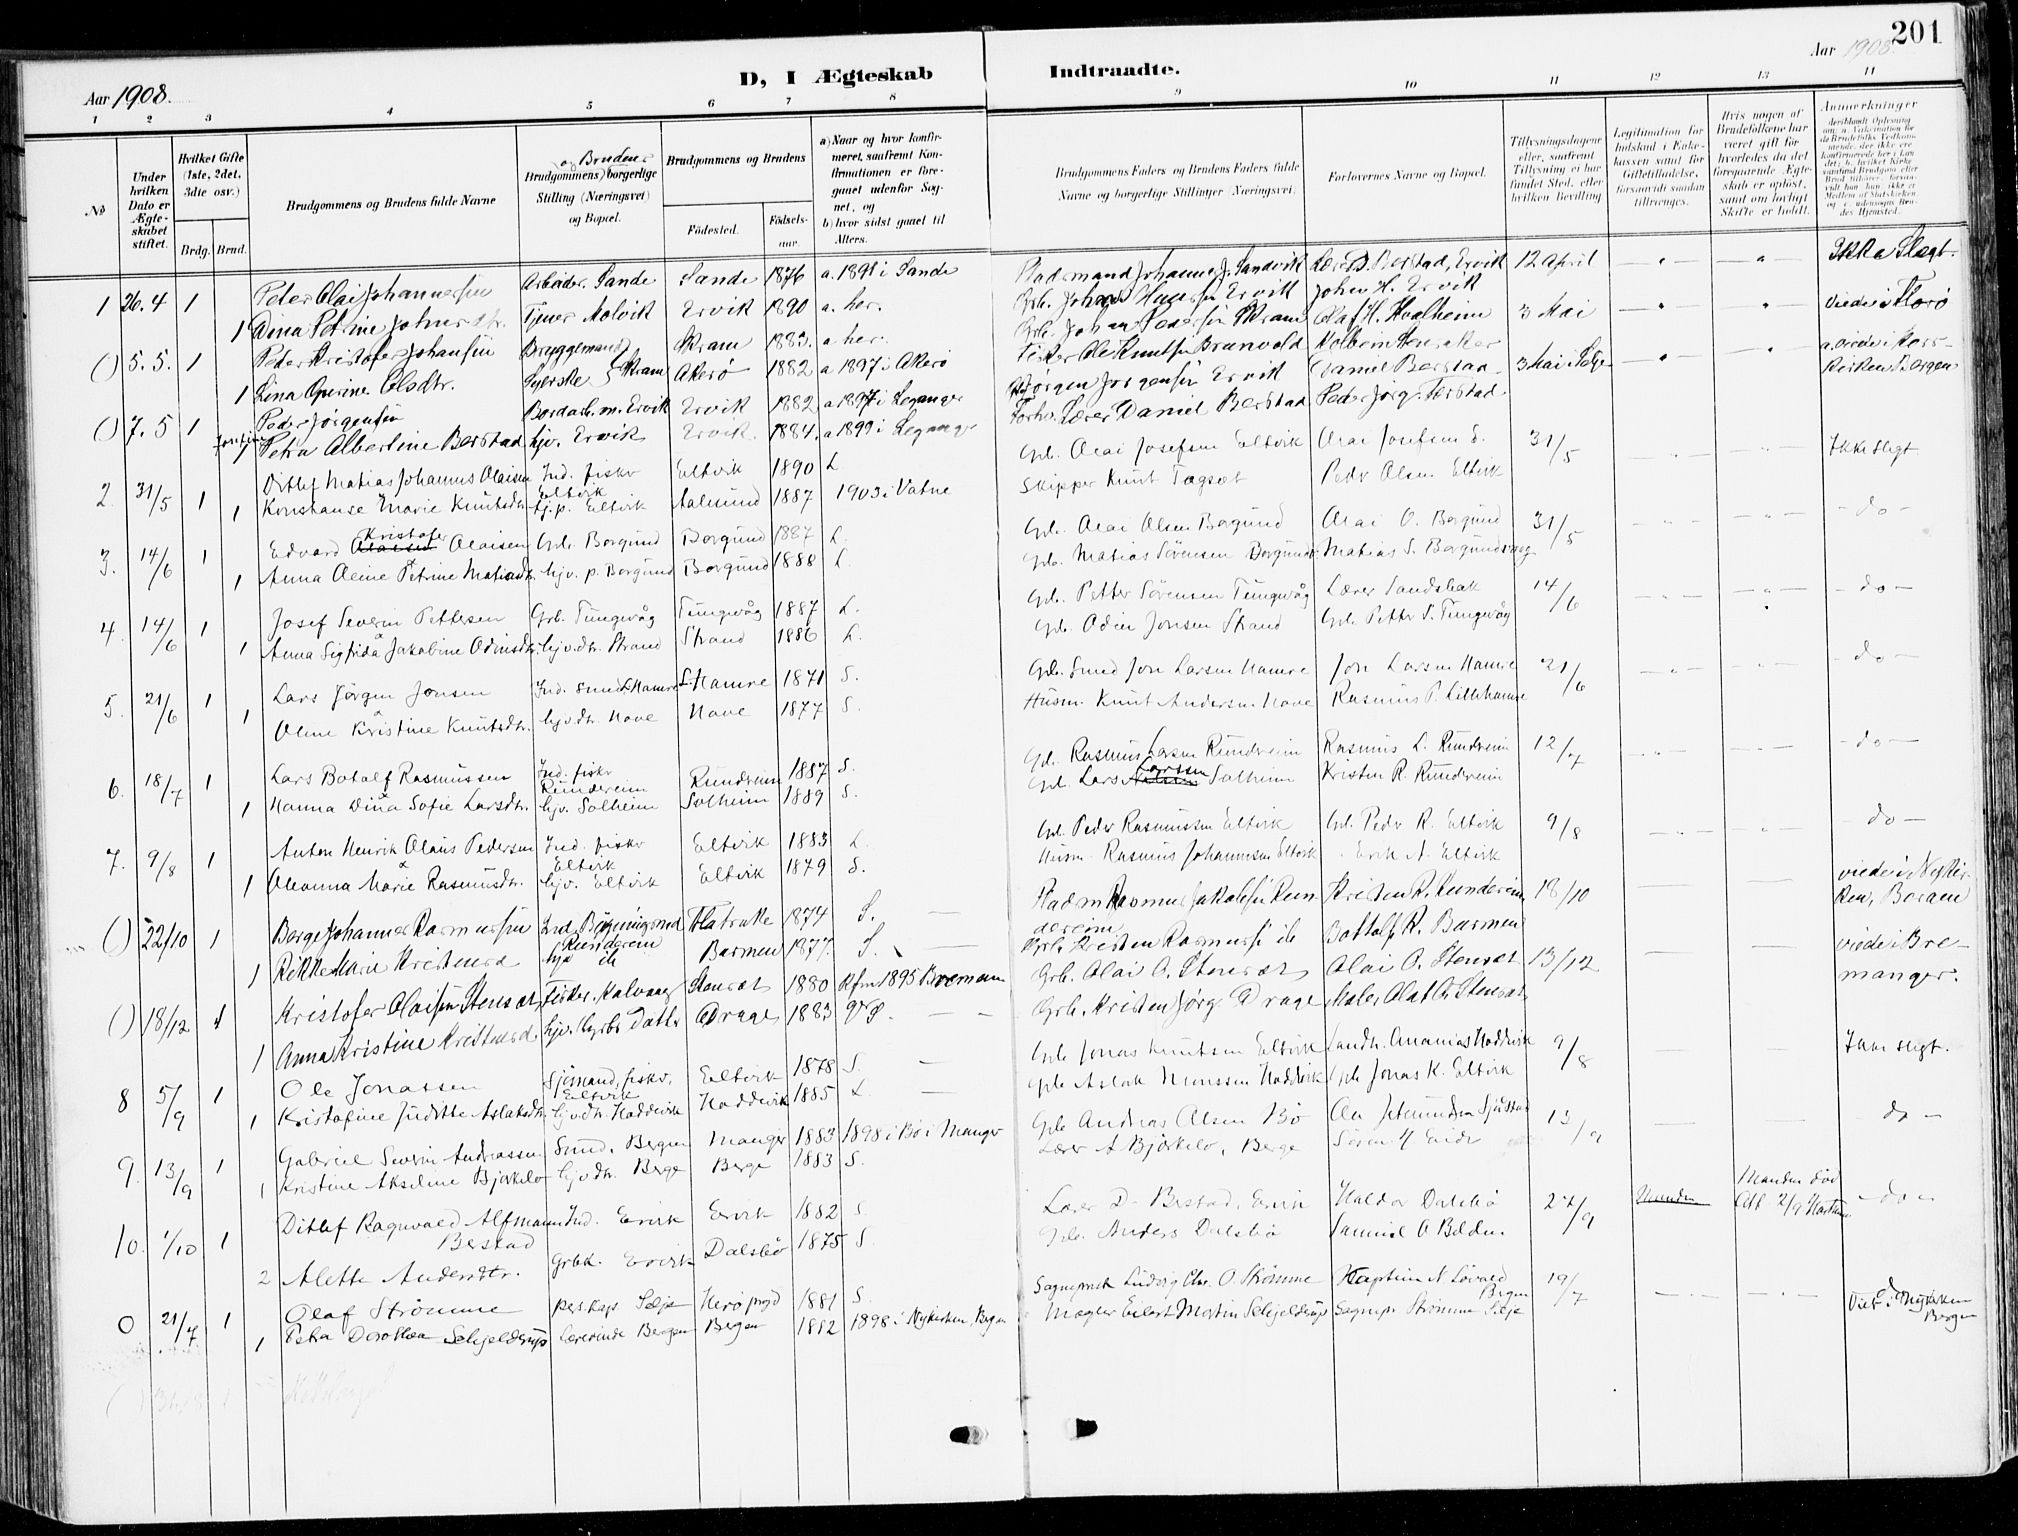 201
Aar 1908.
D, I Ægteskab Indtraadte.
Aar 1908.
1 2 3 4 5 6 7 8 9 10 11 12 13 14
No
Under hvilken Dato er Ægteskabet stiftet.
Hvilket Gifte (1ste, 2det, 3die osv.)
Brdg. Brud.
Brudgommens og Brudens fulde Navne
Brudgommens og Brudens borgerlige Stilling (Næringsvei) og Bopæl.
Brudgommens og Brudens
Födested. Födselsaar.
a) Naar og hvor konfirmeret, saafremt Konfirmationen er foregaaet udenfor Sognet, og
b) hvor sidst gaaet til Alters.
Brudgommens Faders og Brudens Faders fulde Navne og borgerlige Stillinger (Næringsvei)
Forlovernes Navne og Bopæl.
Tillysningsdagene eller, saafremt Tillysning ei har fundet Sted, efter hvilken Bevilling
Legitimation for Indskud i Enkekassen samt for Giftetilladelse, forsaavidt saadan tiltrænges.
Hvis nogen af Brudefolkene har været gift för hvorledes da det foregaaende Ægteskab er oplöst, samt om lovligt Skifte er holdt.
Anmerkninger
1 26.4 1 Peter Olai Johannessen Arbeider. Sande Sande 1876 a. 1891 i Sande Pladsmand Johannes J. Sandvik Lærer D. Berstad, Ervik 12 April Ikke Slægt.
1 Dina Petrine Johnsdtr. Tjener Molvik Ervik 1890 a. her. Grb. John Hansen Ervik John H. Ervik
() 5.5. 1 Peder Kristofer Johansen Bryggemand Skram 1883. a her. Grb. Johan Pedersen Skram Olaf H. Hvalheim 3 Mai viede i Florø
1 Lina Olsdtr. Syerske Skram Akerø 1882 a 1897 i Akerø Fisker Ole Knutsen Brunvold
() 7.5 1 Peder Jörgensen Bordarb. m. Ervik Ervik 1882 a 1897 i Leganger Jörgen Jörgensen Ervik Daniel Berstad 3 Mai i Selje a. viede i Kors-kirken Bergen
1 Petra Albertine Berstad hjv. Ervik Ervik 1884. a 1899 i Leganger Forhv. Lærer Daniel Berstad Peder Jörg. Berstad.
2. 31/5 1 Ditlef Matias Johannes Olaisen Ind. fisker Eltvik Eltvik 1890 L. Grb. Olai Josefsen Eltvik Olai Josefsen E. 31/5 Ikke slegt
1 Konstanse Marie Knutsdtr. tj.p. Eltvik Aalesund 1887 1903 i Vatne Skipper Knut Tagset Peder Olsen Eltvik
3. 14/6 1 Edvard Kristofer Olaisen Grb. Borgund Borgund 1887 L. Grb. Olai Olsen Borgund Olai O. Borgund 31/5 -do-
1 Anna Oline Petrine Matiasdtr. hjv. p. Borgund Borgund 1888 L. Grb. Matias Sörensen Borgund Matias S. Borgundvaag
4. 14/6 1 Josef Severin Pettersen Grb. Tungevåg Tungevåg 1887 L. Grb. Petter Sörensen Tungevåg Lærer Sandsbak 14/6 -do-
1 Anna Sigfrida Jakobine Odinsdtr. hjv.dtr. Strand Strand 1886 L. Grb. Odin Jonsen Strand Grb. Petter S. Tungevåg
5. 21/6 1 Lars Jörgen Jonsen Ind. smed L. Hamre L. Hamre 1871 S. Grb. Smed Jon Larsen Hamre Jon Larsen Hamre 21/6 -do-
1 Oline Kristine Knutsdtr. hjv.dtr. Hove Hove 1877 S. Husm. Knut Andersen Hove Rasmus P. Lillehamre
6. 18/7 1 Lars Botolf Rasmussen Ind. fisker Rundereim Rundreim 1887 S. Grb. Rasmus Larsen Rundreim Rasmus L. Rundreim 12/7 -do-
1 Hanna Dina Sofie Larsdtr. hjv. Solheim Solheim 1889 S. Grb. Lars Larssen Solheim Kristen R. Rundreim
7. 9/8 1 Anton Henrik Olaus Pedersen Ind. fisker Eltvik Eltvik 1883 L. Grb. Peder Rasmussen Eltvik Grb. Peder R. Eltvik 9/8 -do-
1 Oleanna Marie Rasmusdtr. hjv. Eltvik Eltvik 1879 S. Husm. Rasmus Johannesen Eltvik Erik A. Eltvik
() 22/10 1 Berge Johannes Rasmussen Ind. Bygningsmd Rundereim Flatrake 1874 S. Pladsm Rasmus Jakobsen Rundereim Kristen R. Rundereim 18/10 viede i Nykirken, Bergen
1 Rikke Marie Kristensd hjv Barmen 1877. S. Grb. Kristen Rasmussen Bottolf R. Barmen
() 18/12 1 Kristofer Olaisen Stensæt Fisker. Kalvaag Stensæt 1880 Kfm 1895 Bremanger Grb. Olai O. Stensæt Olai O. Stensæt 13/12 viede i Bremanger.
1 Anna Kristine Kristensd. hjv. Grbr Datter Drage 1883 S. Grb. Kristen Jörg. Drage Maler Olaf O. Stensæt
8 5/9 1 Ole Jonassen Sjömand, fisker, Eltvik Eltvik 1878 S. Grb Jonas Knutsen Eltvik Landh. Ananias Hoddevik 9/8 Ikke slegt.
1 Kristofine Juditte Aslaksdtr. hjv.dtr. Hoddevik Hoddevik 1885 L. Grb Aslak Monssen Hoddevik Grb Jonas K. Eltvik
9. 13/9 1 Gabriel Severin Andreassen Smed. Bergen Manger 1883 1898 i Bö i Manger Grb Andreas Olsen Bö 13/9 -do-
1 Kristine Akseline Bjørkelo hjv.dtr. Berge Berge 1883 S. Lærer A Bjørkelo, Berge Sören
10. 1/10 1 Ditlef Ragnvald Alfmann Berstad Ind. Ervik Ervik 1882 S. Lærer D. Berstad, Ervik Haldor Dalsbö 27/9 Manden Manden död -do-
2 Alette Andersdtr. Grbk. Ervik Dalsbö 1875 S. Grb. Anders Dalsbö Samuel O
0 21/7 1 Olaf Strömme pers.kap. Selje Herö 1881 S. Sogneprest Ludvig Chr. O. Strömme Kaptein N Lövold Bergen 19/7 Viet i Nykirken Bergen
1 Petra Dorothea Schjelderup Lærerinde Bergen Bergen 1882 1898 i Nykirken Bergen Mægler Eilert Martin Schjelderup Sognepr Strömme Selje